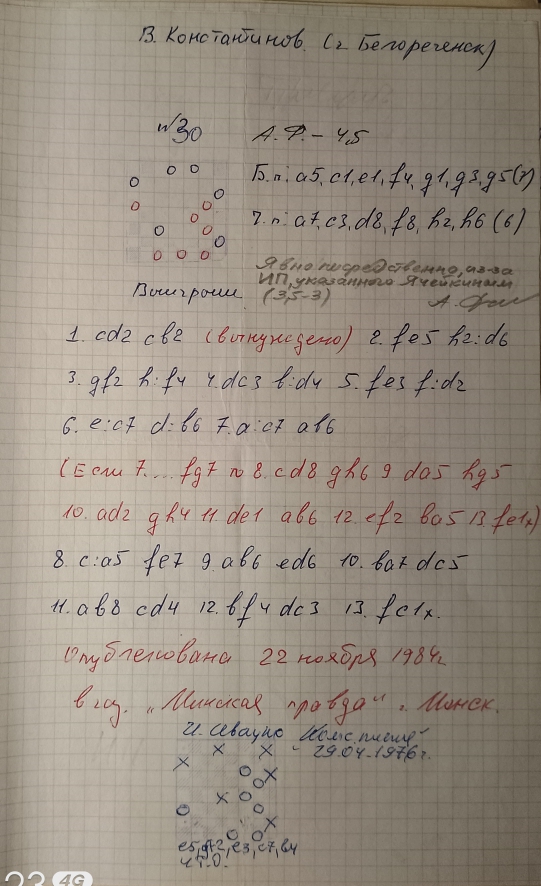 В. Константинов. (г. Белореченск)
№30 А.Ф. – 4,5
Б.п: a5, c1, e1, f4, g1, g3, g5 (7)
Ч.п: a7, c3, d8, f8, h2, h6 (6)
Явно посредственно, из-за
ИП, указанного Ячейкиным
Выигрыш (3,5-3)
1. cd2 cb2 (вынуждено) 2. fe5 h2:d6
3. gf2 h:f4 4. dc3 b:d4 5. fe3 f:d2
6. e:c7 d:b6 7. a:c7 ab6
(Если 7.... fg7 то 8. cd8 gh6 9 da5 hg5
10. ad2 gh4 11. de1 ab6 12. ef2 ba5 13. fe1x)
8. c:a5 fe7 9. ab6 ed6 10. ba7 dc5
11. ab8 cd4 12. bf4 dc3 13. fc1x.
Опубликована 22 ноября 1984г.
в газ. "Минская правда" г. Минск.
И. Ивацко
29.04.1976г.
e5, g12, e3, c7, b4
ч.т.д.
23 4G